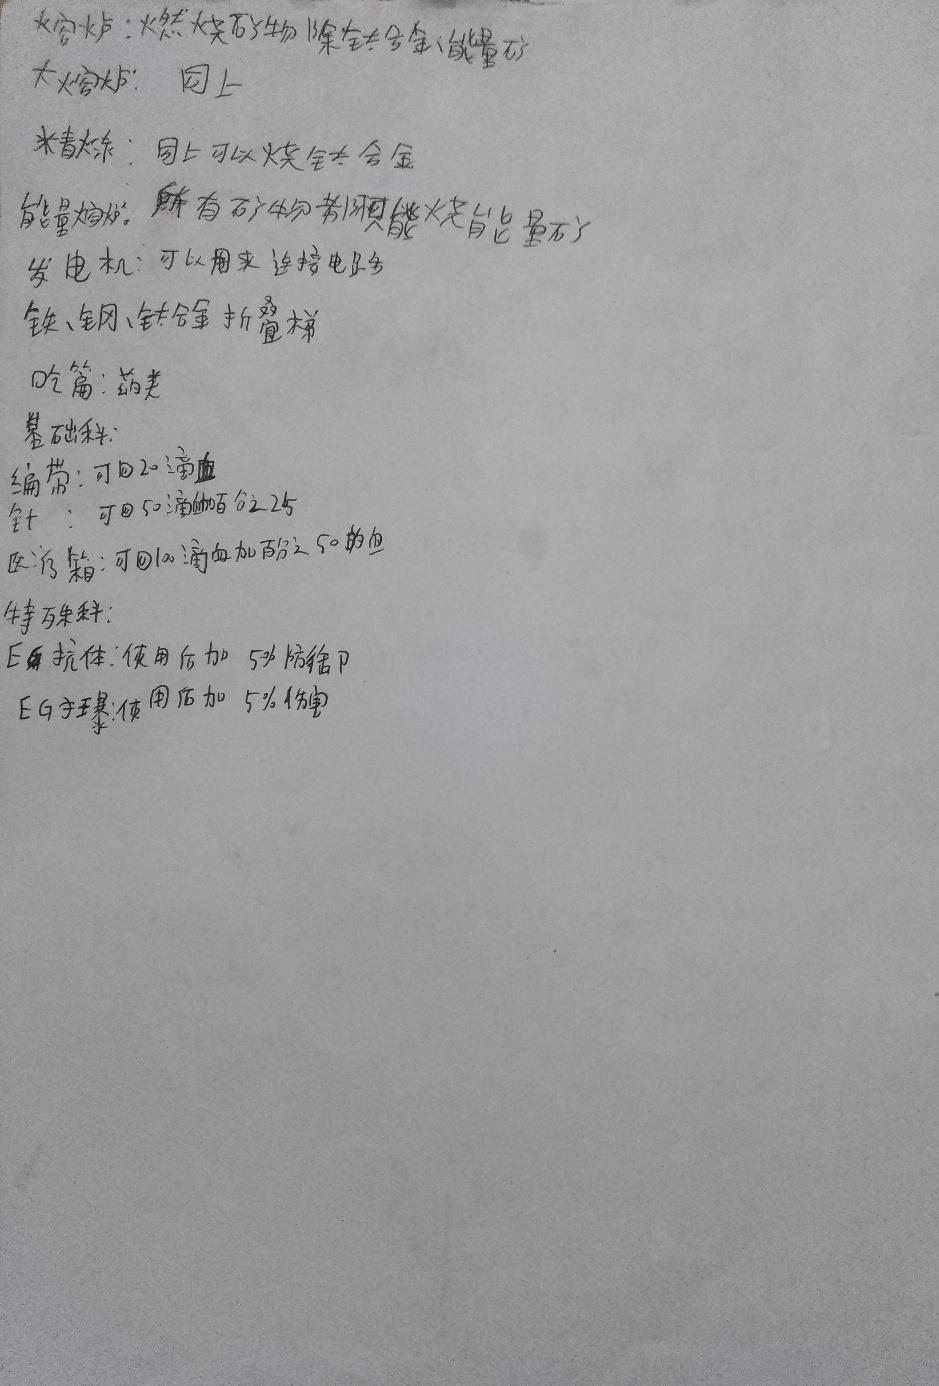 熔炉：燃烧矿物除钛合金、能量矿
大熔炉：同上
精炼：同上可以烧钛合金
能量熔炉：所有矿物都能烧能量矿
发电机：可以用来连接电路
铁、钢、钛合金折叠梯
吃篇：药类
基础科：
编带：可回20滴血
针：可回50滴血加百分之25
医疗箱：可回100滴血加百分之50的血
特殊科：
E抗体：使用后加5%防御
EG手曝：使用后加5%伤害